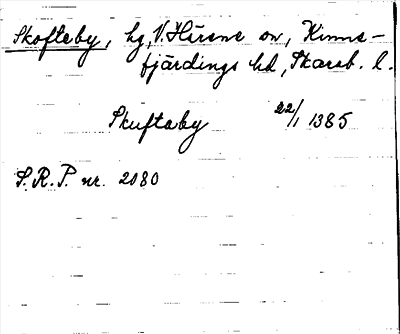 Skofteby, hg, V. Hisene sn, Kinne-
fjärdings hd, Skarab. l.
Skuftaby 22/1 1385
S.R.P. nr. 2080